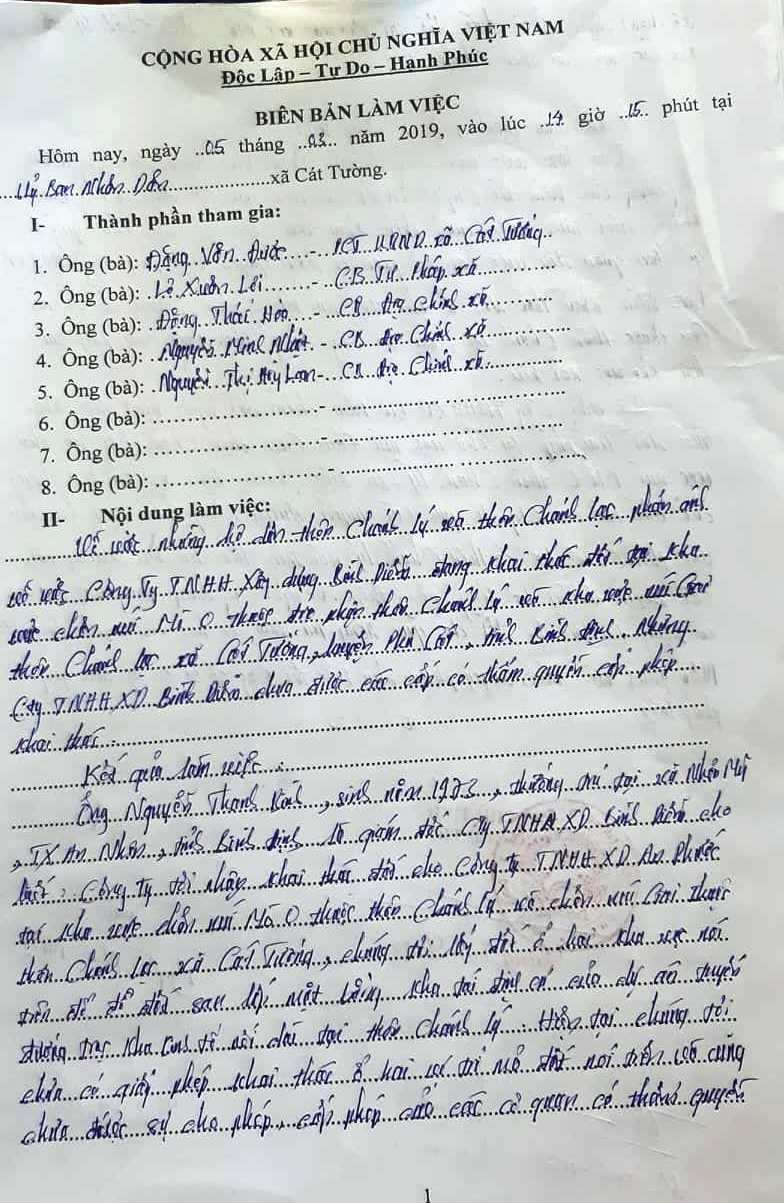 CỘNG HÒA XÃ HỘI CHỦ NGHĨA VIỆT NAM
Độc Lập – Tự Do – Hạnh Phúc
BIÊN BẢN LÀM VIỆC
Hôm nay, ngày ..05 tháng ..03.. năm 2019, vào lúc .14. giờ ..15.. phút tại
...Uỷ.Ban.Nhân.Dân....................xã Cát Tường.
I- Thành phần tham gia:
1. Ông (bà): Đặng Văn Được - PCT UBND xã Cát Tường
2. Ông (bà): Lê Xuân Lợi - CB Tư pháp xã
3. Ông (bà): Đặng Thái Hòa - CB địa chính xã
4. Ông (bà): Nguyễn Minh Nhật - CB địa chính xã
5. Ông (bà): Nguyễn Thị Mỹ Loan - CB địa chính xã
6. Ông (bà): 
7. Ông (bà): 
8. Ông (bà): 
II- Nội dung làm việc:
Về việc những hộ dân thôn Chánh Lý và thôn Chánh Lạc phản ánh
về việc Công Ty TNHH Xây dựng Bình Diên đang khai thác đất tại khu
vực chân núi Mò O thuộc địa phận thôn Chánh Lý và khu vực núi Gai
thôn Chánh Lạc xã Cát Tường, huyện Phù Cát, tỉnh Bình Định. Nhưng
Cty TNHH XD Bình Diên chưa được các cấp có thẩm quyền cấp phép
khai thác.
Kết quả làm việc:
Ông Nguyễn Thanh Bình, sinh năm 1973, thường trú tại xã Nhơn Mỹ
, TX An Nhơn, tỉnh Bình Định là giám đốc Cty TNHH XD Bình Diên cho
biết: Công ty tôi nhận khai thác đất cho Công ty TNHH XD An Phước
tại khu vực chân núi Mò O thuộc thôn Chánh Lý và chân núi Gai thuộc
thôn Chánh Lạc xã Cát Tường, chúng tôi lấy đất ở hai khu vực nói
trên để đổ đất san lấp mặt bằng khu tái định cư của dự án tuyến
đường trục Khu kinh tế nối dài tại thôn Chánh Lý. Hiện tại chúng tôi
chưa có giấy phép khai thác ở hai vị trí mỏ đất nói trên và cũng
chưa được sự cho phép, cấp phép của các cơ quan có thẩm quyền
1